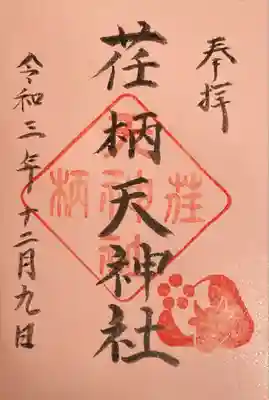 奉拝
荏柄天神社
令和三年十二月九日
荏柄
天神社